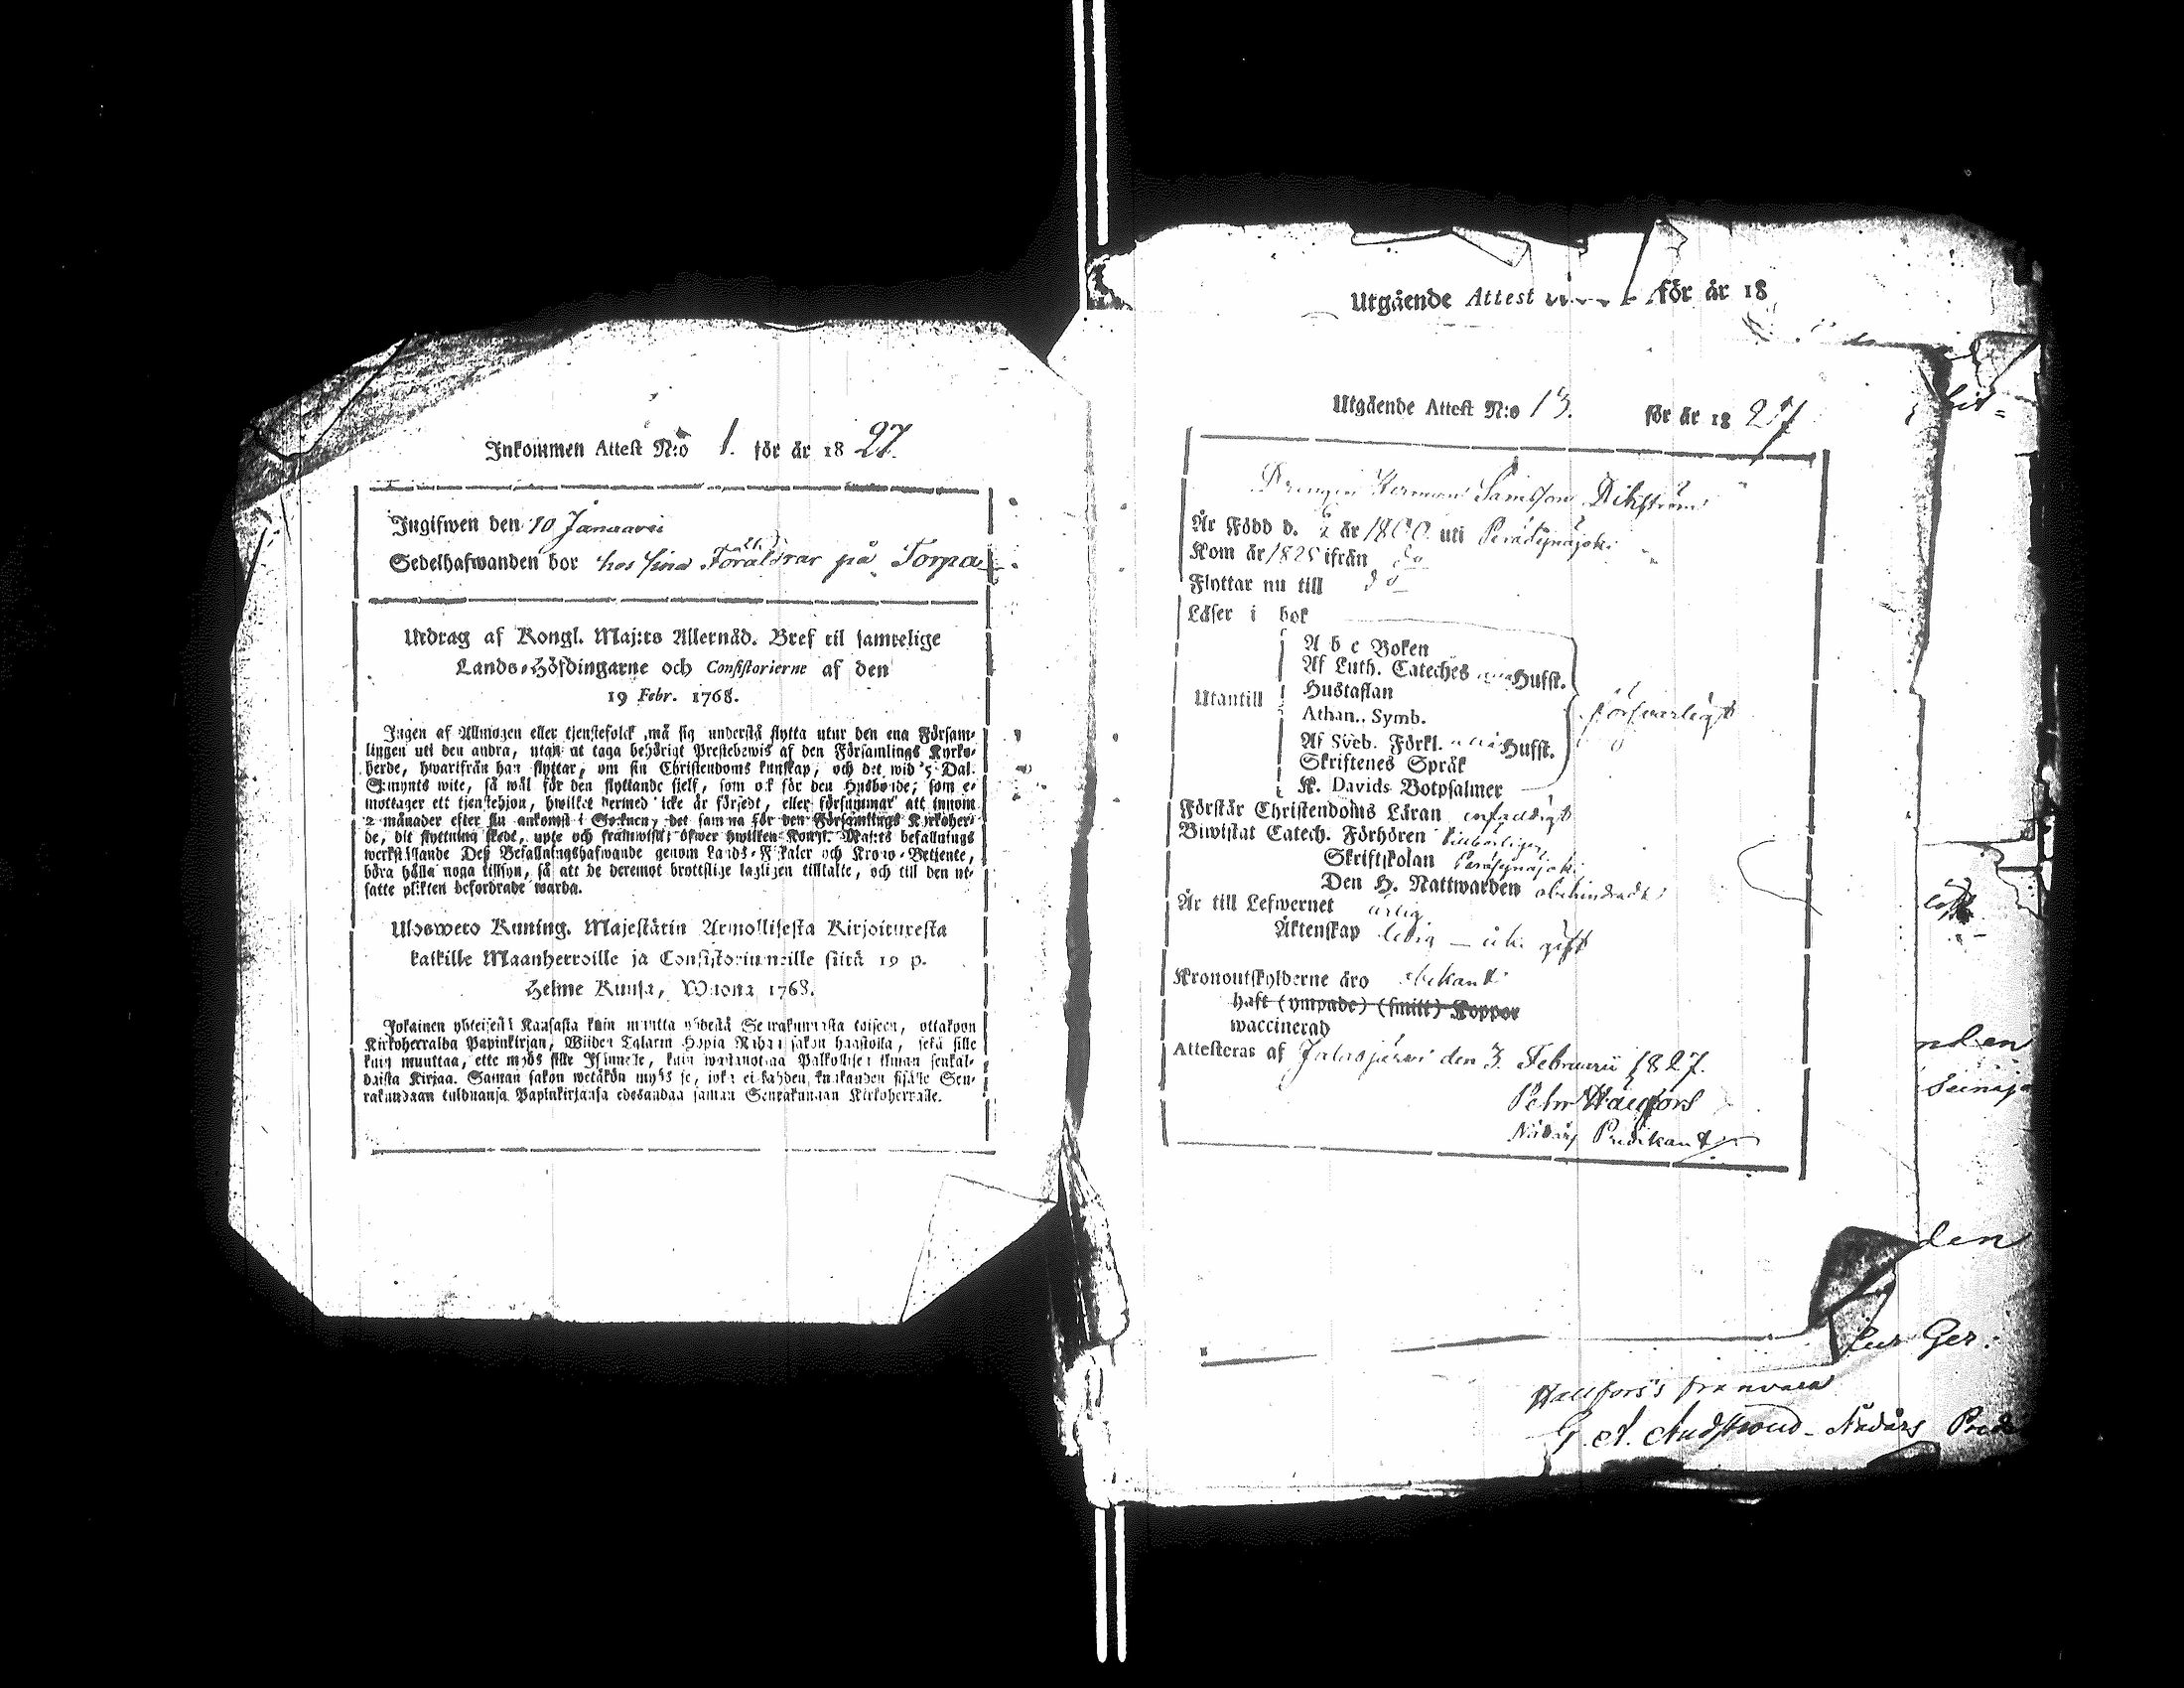 Inkommen Attest N:o 1. för år 1827.
Ingifwen den 10 Januarii
Sedelhafwanden bor hos sina Föräldrar på Torpa
Utdrag af Kongl. Maj:ts Allernåd. Bref til samtelige
Lands-Höfdingarne och Consistorierne af den
19 Febr. 1768.
Ingen af Allmogen eller tjenstefolck må sig understå flytta utur den ena Försam-
lingen uti den andra, utan at taga behörigt Prestebewis af den Församlings Kyrko-
herde, hwarifrån han flyttar, om sin Christendoms kunskap, och det wid 5 Dal.
S:mynts wite, så wäl för den flyttande sjelf, som ock för den Husbonde, som e-
mottager ett tjenstehjon, hwilket dermed icke är försedt, eller försummar att innom
2 månader efter sin ankomst i Socknen, det samma för den Församlings Kyrkoher-
de, dit flyttning skedt, upte och framwist; öfwer hwilken Kongl. Maj:ts befallnings
werkställande Deß Befallningshafwande genom Lands-Fiskaler och Krono-Betjente,
böra hålla noga tillsyn, så att de deremot brottslige lagligen tilltalte, och till den ut-
satte plikten befordrade warda.
Ulosweto Kuning. Majestätin Armollisesta Kirjoituxesta
kaikille Maanherroille ja Consistoriumeille siitä 19 p.
Helme Kuusa, Wuona 1768.
Jokainen yhteisestä Kansasta kuin muutta yhdestä Seurakunnasta toiseen, ottakoon
Kirkoherralda Papinkirjan, Wiiden Talarin Hopia Rahan sakon haastolla, sekä sille
kuin muuttaa, ette myös sille Isännälle, kuin wastanottaa Palkollisen ilman senkal-
daista Kirjaa. Saman sakon wetäkön myös se, joka ei kahden kuukauden sisälle Seu-
rakundaan tulduansa Papinkirjansa edesandaa saman Seurakunnan Kirkoherralle.
Utgående Attest för år 18
Utgående Attest N:o 13. för år 1827
Drengen Herman Samßon Dikström
Är Född d. 2 år 1800 uti Peräseynäjoki
Kom år 1825 ifrån do
Flyttar nu till do
Läser i bok
A b c Boken
Af Luth. Cateches Hufst.
Utantill Hustaflan
Athan. Symb.
försvarligt
Af Sveb. Förkl. Hufst.
Skriftenes Språk
K. Davids Botpsalmer
Förstår Christendoms Läran enfaldigt
Biwistat Catech. Förhören
Skriftskolan Peräseynäjoki
Den H. Nattwarden obehindradt
Är till Lefwernet ärlig
Äktenskap ledig gift
Kronoutskylderne äro obekant
haft (ympade) (smitt) Koppor
waccinerad
Attesteras af Jalasjärvi den 3. Februarii 1827.
Pehr Wäegfors
Nådårs Predikant
nden
Seinäjo
den
Ger.
frånvaro
G. A. Nådårs Pred